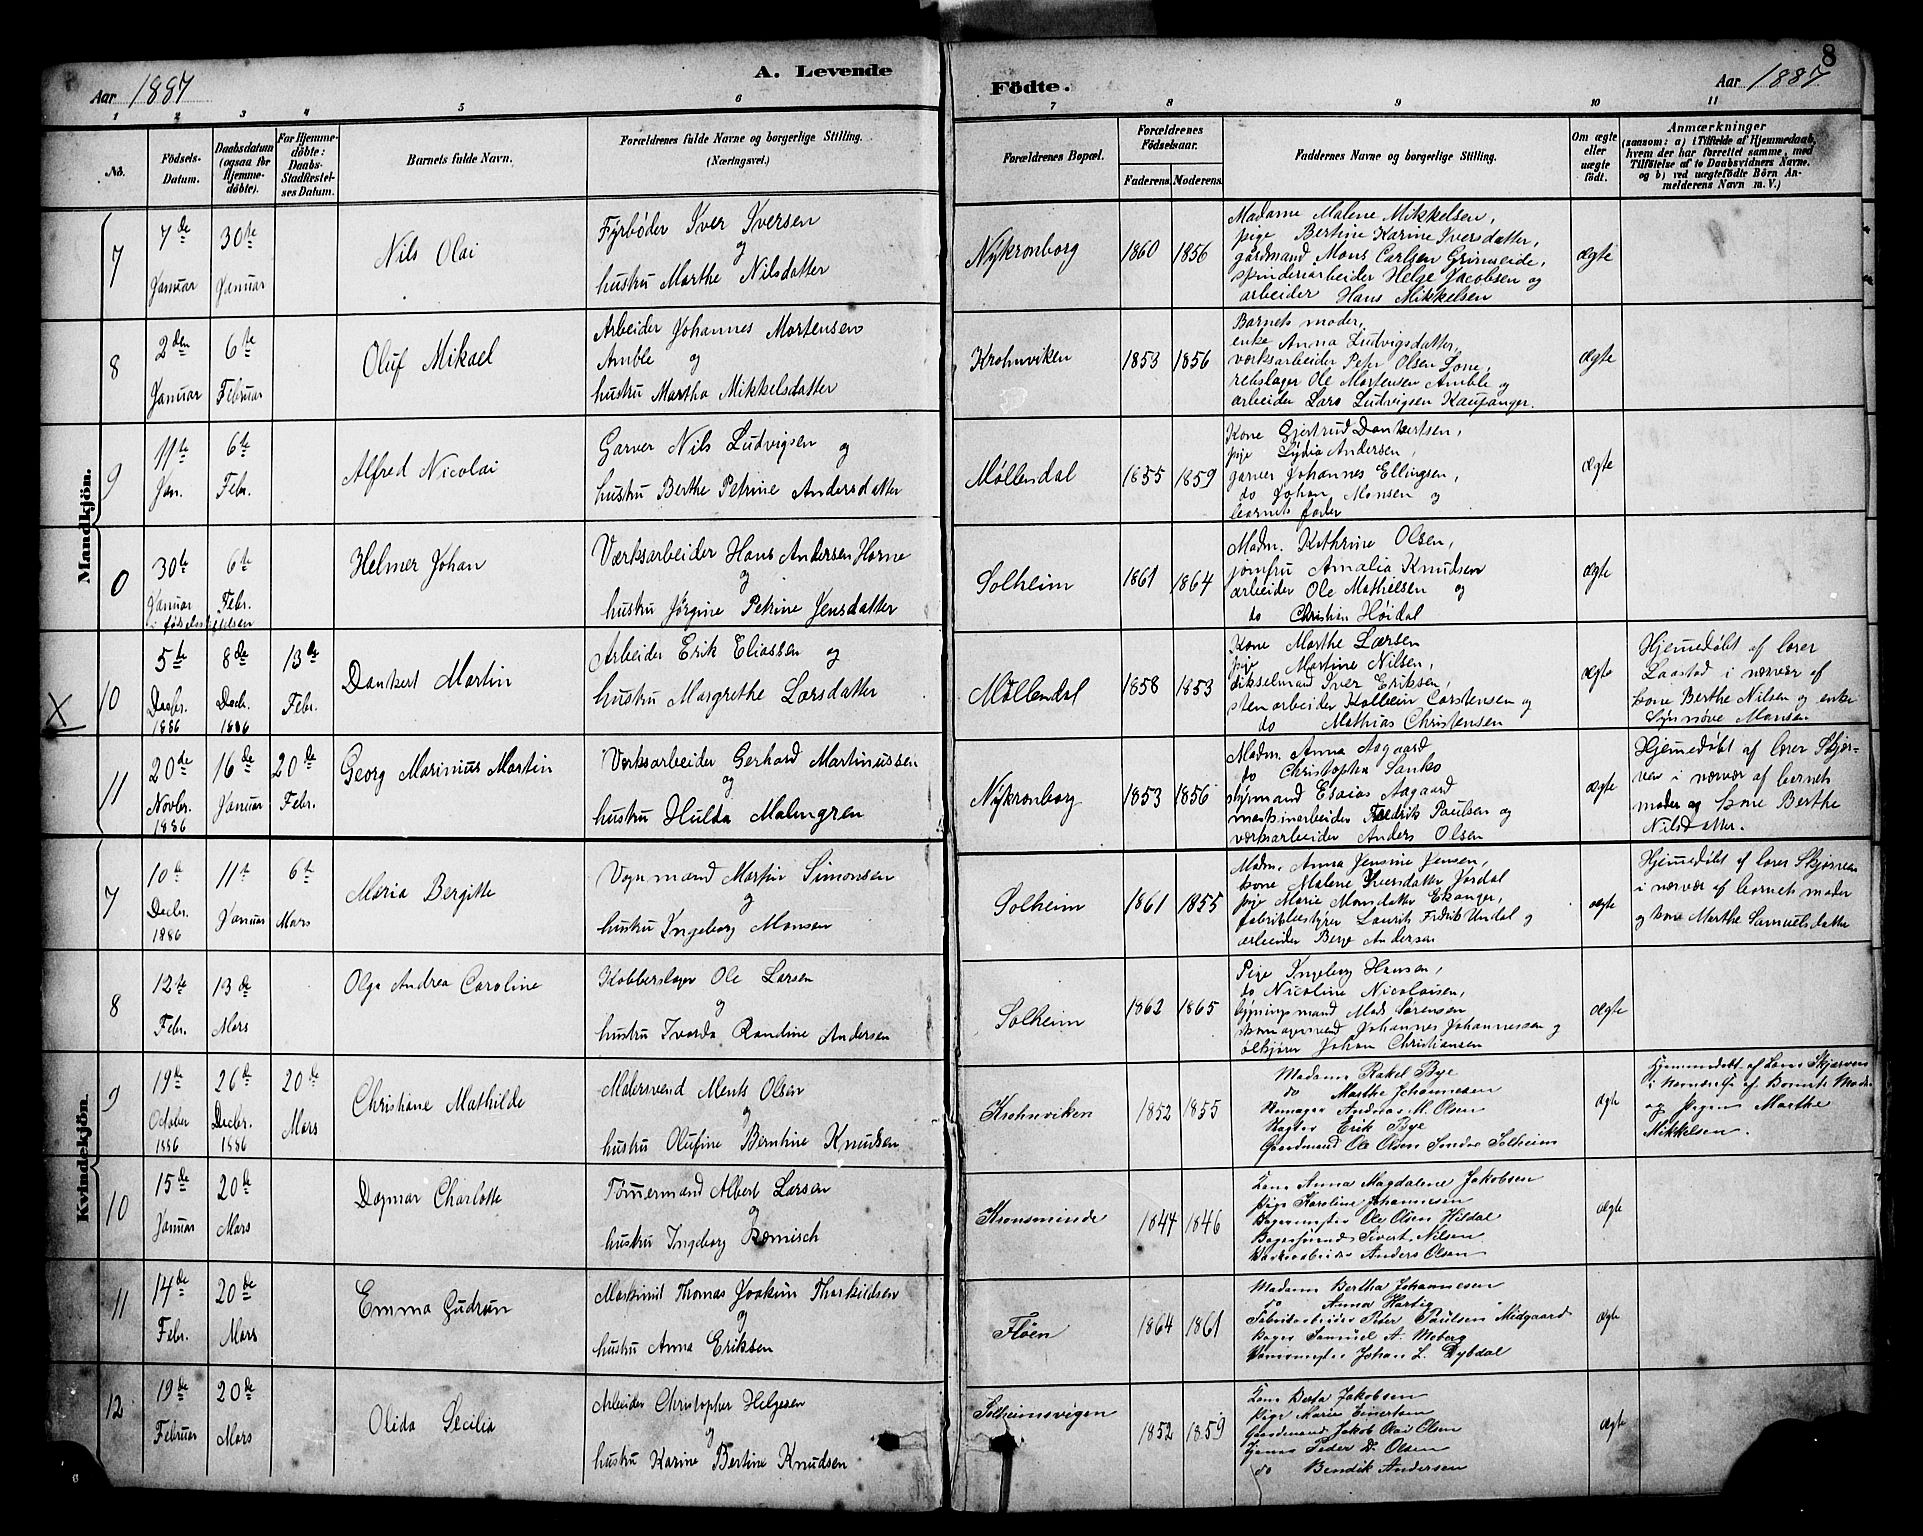 8
Aar 1887
A. Levende
Födte.
Aar 1887
1 2 3 4 5 6 7 8 9 10 11
No.
Födsels-
Datum.
Daabsdatum
(ogsaa for
Hjemme-
döbte).
For Hjemme-
döbte:
Daabs-
Stadfæstel-
ses Datum.
Barnets fulde Navn.
Forældrenes fulde Navne og borgerlige Stilling.
(Næringsvei.)
Forældrenes Bopæl.
Forældrenes
Födselsaar.
Faderens. Moderens.
Faddernes Navne og borgerlige Stilling.
Om ægte
eller
uægte
født.
Anmærkninger
(saasom: a) i Tilfælde af Hjemmedaab,
hvem der har forrettet samme, med
Tilföielse af to Daabsvidners Navne.
og b) ved uægtefödte Börn An-
melderens Navn m. V.)
Mandkjön.
7
7de
Januar
30te
Januar
Nils Olai
Fyrbøder Iver Iversen
og
hustru Marthe Nilsdatter
Nykronborg
1860 1856
Madame Malene Mikkelsen,
pige Bertine Karine Iversdatter,
gårdmand Mons Carlsen Grimseide,
skinderarbeider Helge Jacobsen og
arbeider Hans Mikkelsen
ægte
8
2den
Januar
6te
Februar
Oluf Mikael
Arbeider Johannes Mortensen
Amble og
hustru Martha Mikkelsdatter
Krohnviken
1853 1856
Barnets moder,
enke Anna Ludvigsdatter,
værksarbeider Peter Olsen Lone,
rebslager Ole Mortensen Amble og
arbeider Lars Ludvigsen Kaupanger.
ægte
9
11te
Jan.
6te
Febr.
Alfred Nicolai
Garver Nils Ludvigsen og
hustru Berthe Petrine Andersdatter
Møllendal
1855 1859
Kone Gjertrud Dankertsen,
pige Lydia Andersen,
garver Johannes Ellingsen,
do Johan Monsen og
barnets fader
ægte
0
30te
Januar
i fødselsstiftelsen
6te
Febr.
Helmer Johan
Værksarbeider Hans Andersen Horne
og
hustru Jørgine Petrine Jensdatter
Solheim
1861 1864
Madm. Kathrine Olsen,
jomfru Amalia Knudsen
arbeider Ole Mathiesen og
do Christian Høidal
ægte
X
10
5te
Decbr.
1886
8de
Decbr.
1886
13de
Febr.
Dankert Martin
Arbeider Erik Eliassen og
hustru Margrethe Larsdatter
Møllendal
1858 1853
Kone Marthe Larsen
pige Martine Nilsen,
dikselmand Iver Eriksen,
stenarbeider Kolbein Carstensen og
do Mathias Christensen
ægte
Hjemedøbt af lærer
Laastad i nærvær af
kone Berthe Nilsen og enke
Synnøve Monsen
11
20de
Novbr.
1886
16de
Januar
20de
Febr.
Georg Marinius Martin
Værksarbeider Gerhard Martinussen
og
hustru Hulda Malmgren
Nykronborg
1853 1856
Madm. Anna Aagaard
do Christopha Sanko
styrmand Esaias Aagaard
maskinarbeider Fredrik Paulsen og
værksarbeider Anders Olsen
ægte
Hjemedøbt af lærer Skjer-
ven i nærvær af barnets
moder og kone Berthe
Nilsdatter.
Kvindekjön.
7
10de
Decbr.
1886
11te
Januar
6te
Mars
Maria Bergitte
Vognmand Martin Simonsen
og
hustru Ingeborg Monsen
Solheim
1861 1855
Madm. Anna Jensine Jensen,
kone Malene Iversdatter Jordal
pige Marie Monsdatter Ekanger,
fabrikbestyrer Laurits Fredrik Undal og
arbeider Berge Andersen
ægte
Hjemedøbt af lærer Skjerven
i nærvær af barnets moder
og kone Marthe Samuelsdatter
8
12te
Febr.
13de
Mars
Olga Andrea Caroline
Kobberslager Ole Larsen
og
hustru Ivarda Randine Andersen
Solheim
1862 1865
Pige Ingeborg Hansen,
do Nicoline Nicolaisen,
bygningsmand Mads Sørensen
skomagersvend Johannes Johannessen og
ølkjører Johan Christiansen
ægte
9
19de
October
1886
26de
Decbr.
1886
20de
Mars
Christiane Mathilde
Malersvend Ments Olsen
og
hustru Olufine Berntine Knudsen
Krohnviken
1852 1855
Madame Rakel Bye
do Marthe Johannesen
Skomager Andreas M. Olsen
Erik Bye
Gaardmand Ole Olsen Søndre Solheim
ægte
Hjemmedøbt af Lærer Skjerven
i Nærværelse af Barnets Moder
og Pigen Marthe
Mikkelsen.
10
15de
Januar
20de
Mars
Dagmar Charlotte
Tømmermand Albert Larsen
og
hustru Ingeborg Bömisch
Kronsminde
1844 1846
Kone Anna Magdalene Jakobsen
Pige Karoline Johannesen
Bagermester Ole Olsen Hildal
Bagersvend Sivert Nilsen
Værksarbeider Anders Olsen
ægte
11
14de
Febr.
20de
Mars
Emma Gudrun
Maskinist Thomas Joakim Tharkildsen
og
hustru Anna Eriksen
Fløen
1864 1861
Madame Bertha Johannesen
do Anna Hartig
Fabrikarbeider Peder Paulsen Midgaard
Bager Samuel A. Moberg
Johan L. Dybdal
ægte
12
19de
Februar
20de
Mars
Olida Secilia
Arbeider Christopher Helgesen
og
hustru Karine Bertine Knudsen
Solheimsvigen
1852 1859
Kone Berta Jakobsen
Pige Marie Einertsen
Gaardmand Jakob Olai Olsen
Peder D. Olsen
do Bendik Andersen
ægte